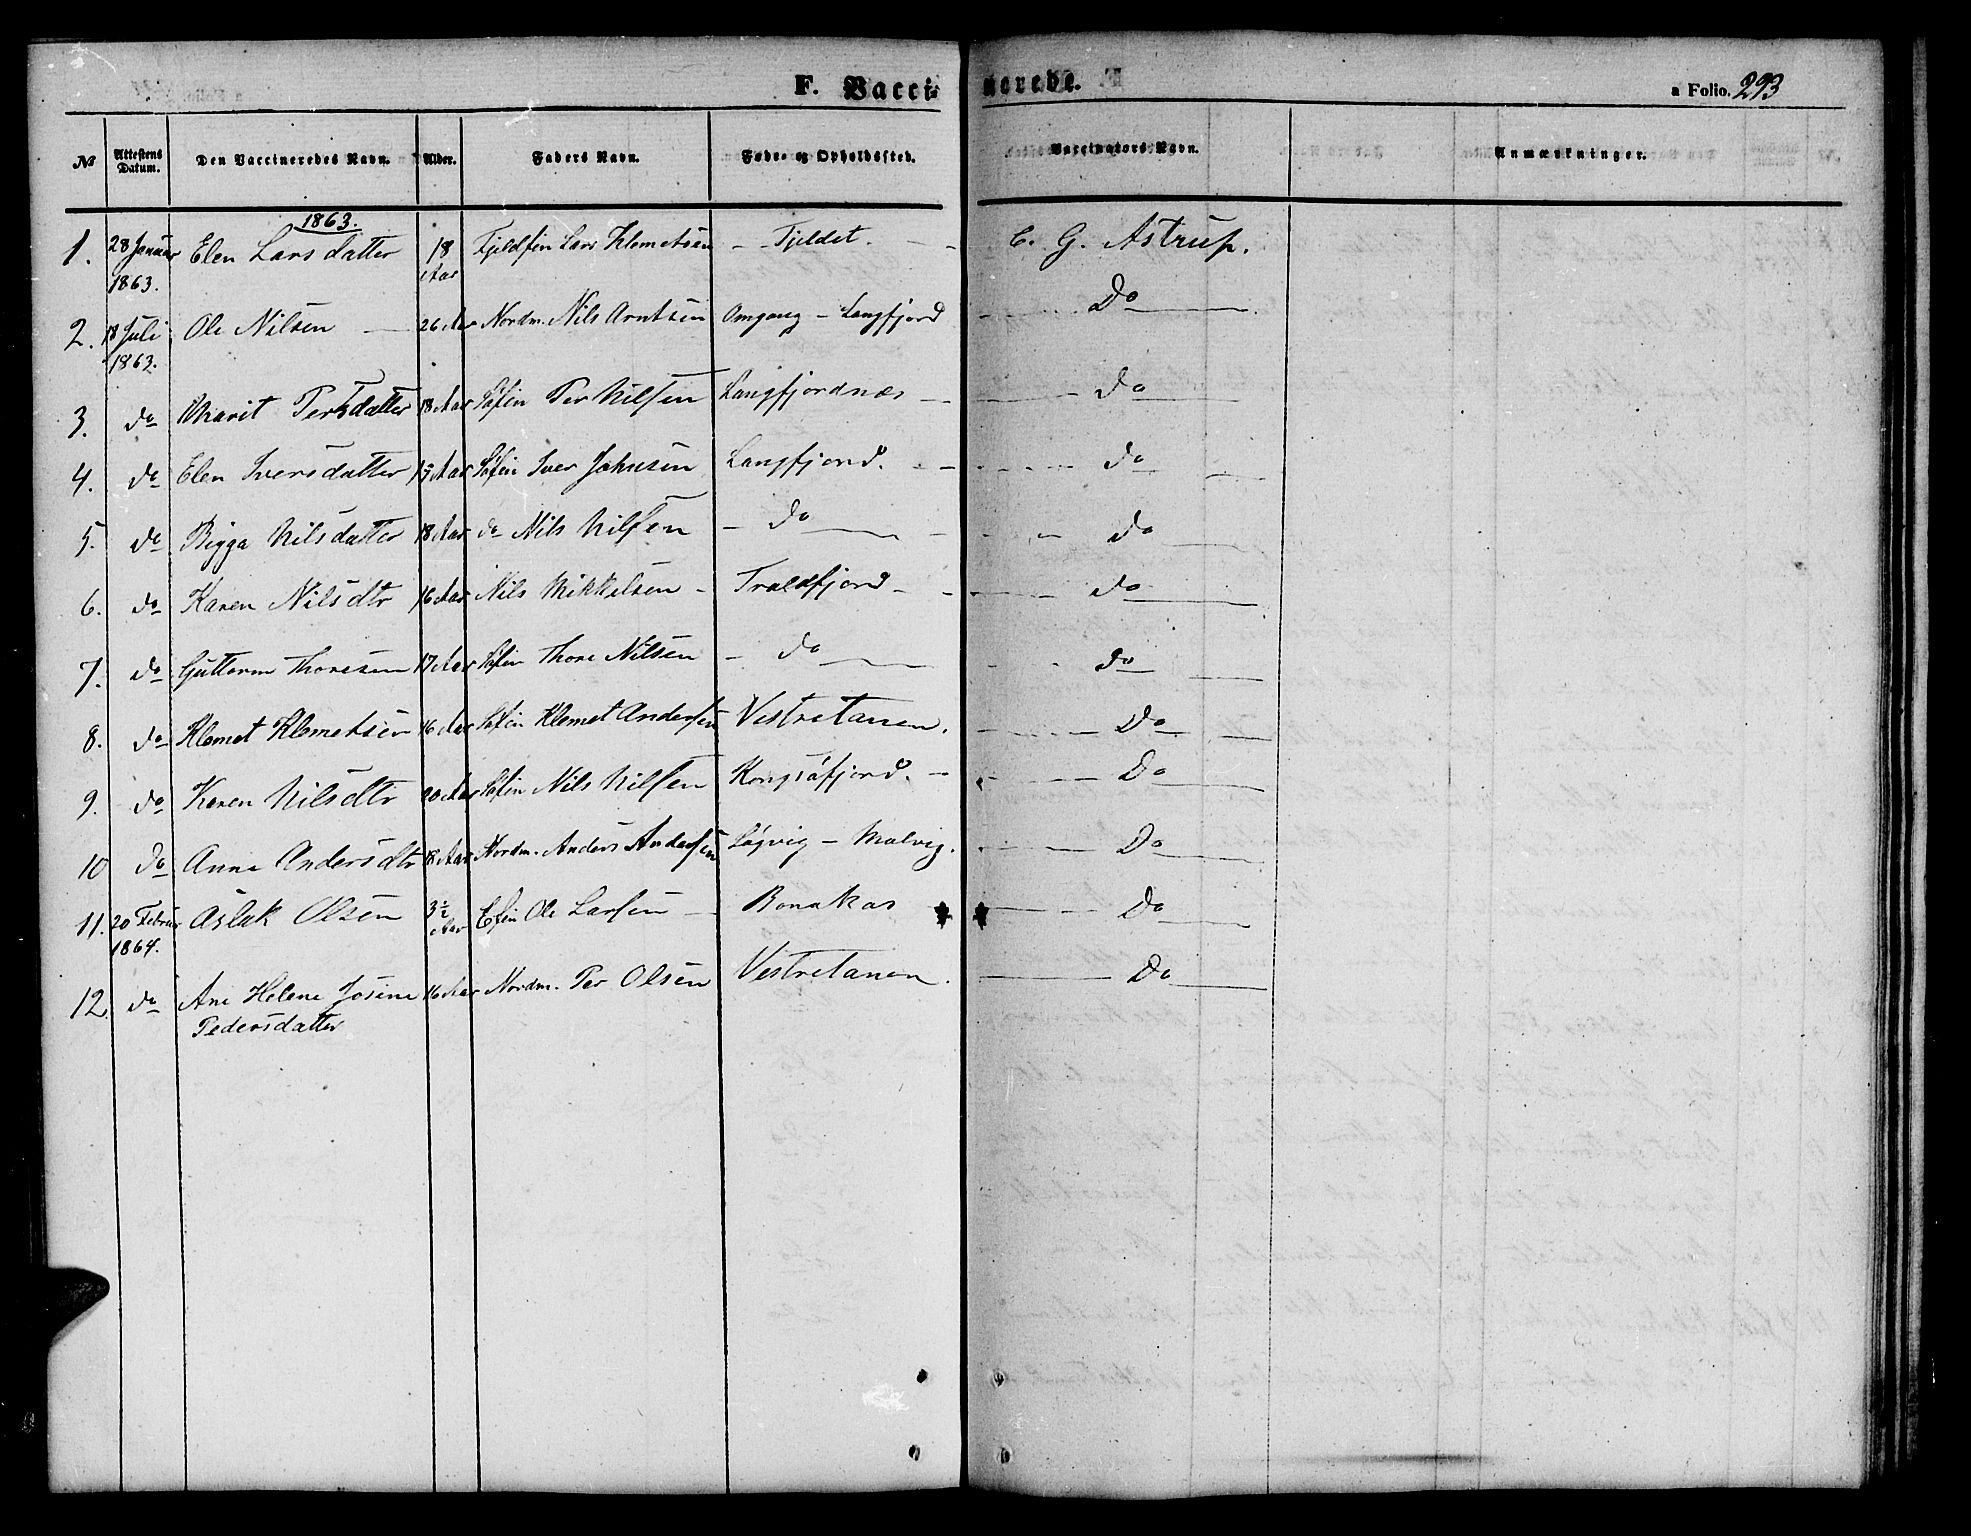 F. Vaccinerede.
a Folio. 293
№ Attestens Datum. Den Vaccineredes Navn. Alder. Faders Navn. Føde- og Opholdssted. Vaccinators Navn. Anmærkninger.
1863.
1. 28 Januar 1863. Elen Larsdatter 18 Aar Fjeldfin Lars Klemetsen - Fjeldet. - - C. G. Astrup.
2. 18 Juli 1863. Ole Nilsen — 26 Aar Nordm. Nils Arntsen Omgang - Langfjord Do
3. do Marit Persdatter 18 Aar Søfin Per Nilsen Langfjordnæs do
4. do Elen Iversdatter 15 Aar Søfin Iver Johnsen Langfjord. do
5. do Bigga Nilsdatter 18 Aar do Nils Nilsen - do do
6. do Karen Nilsdtr 16 Aar Nils Mikkelsen - Troldfjord - do
7. do Guttorm Thoresen 17 Aar Søfin Thore Nilsen - do do
8. do Klemet Klemetsen 16 Aar Søfin Klemet Andersen Vestretanen. Do
9. do Karen Nilsdtr 20 Aar Søfin Nils Nilsen Kongsøfjord. - Do
10 do Anne Andersdtr 18 Aar Nordm. Anders Andersen Løgvig - Molvig. Do
11. 20 Februar 1864. Aslak Olsen 3½ Aar Efin Ole Larsen - Bonakas Do
12. do Ane Helene Josine 16 Aar Nordm. Per Olsen Vestretanen. Do
Pedersdatter